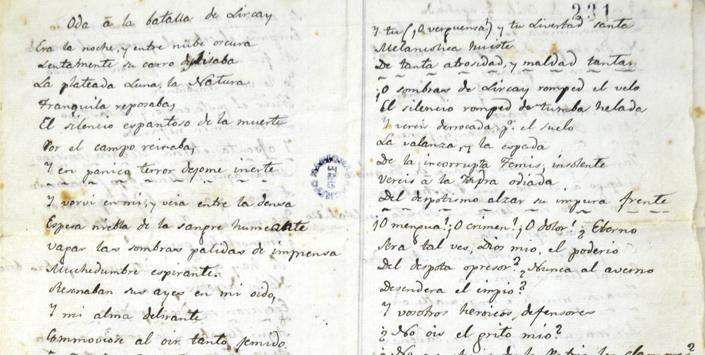 Oda à la batalla de Lircay
Era la noche, y entre nube oscura
Lentamente su carro deslisaba
La plateada Luna, la Natura
Tranquila reposaba,
El silencio espantoso de la muerte
Por el campo reinaba,
Y en panico terror dejome inerte
Y volvi en mi, y veia entre la densa
Espesa niebla de la sangre humeante
vagar las sombras palidas de imprensa
Muchedumbre espirante.
Resonaban sus ayes en mi oido,
Y mi alma delirante
Commoviose al oir tanto jemido.
231
Y tu (¡O verguensa!) y tu Livertad santa
Melancolica huiste
De tanta atrosidad, y maldad tanta.
¡O sombras de Lircay romped el velo
El silencio romped de tumba helada
Y vereis derrocada pr. el suelo
La valanza, y la espada
De la incorrupta Temis, insolente
Vereis à la odiada
Del despotismo alzar su impura frente
¡O mengua! ¡O crimen! ¡O dolor! ¿Eterno
Sera tal ves, Dios mio, el poderio
Del despota opresor? ¿Nunca al averno
Desendera el impio?
Y vosotros heroicos, defensores
¿No ois el grito mio?
¿No de la